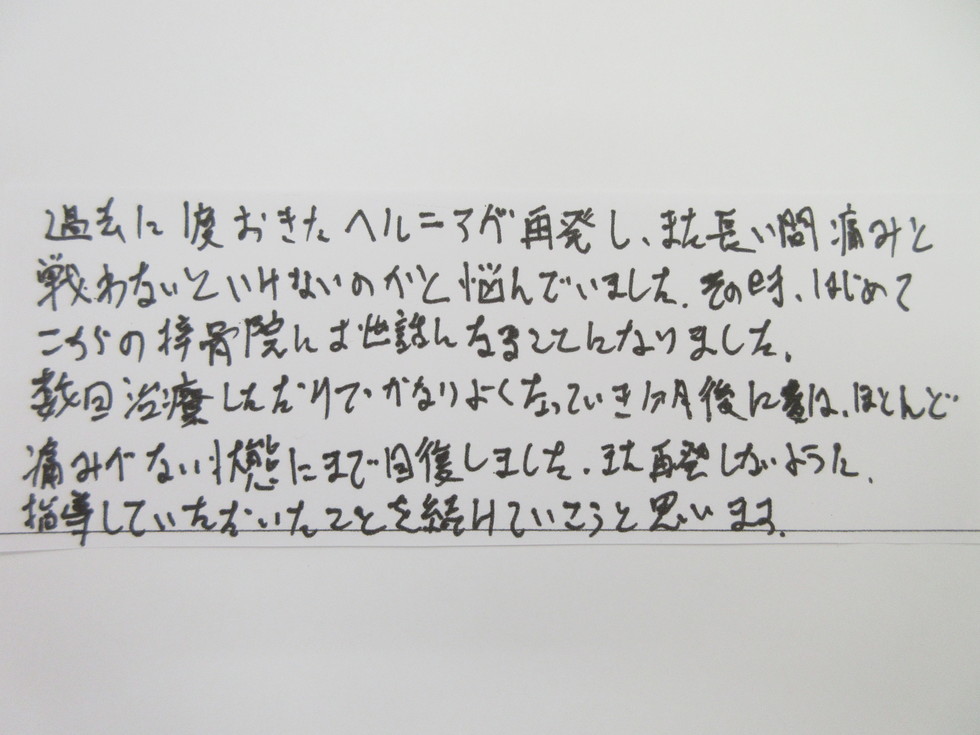 過去に1度おきたヘルニアが再発し、また長い間痛みと
戦わないといけないのかと悩んでいました。その時、はじめて
こちらの接骨院にお世話になることになりました。
数回治療しただけでかなりよくなっていき1か月後には、ほとんど
痛みがない状態にまで回復しました。また再発しないように、
指導していただいたことを続けていこうと思います。